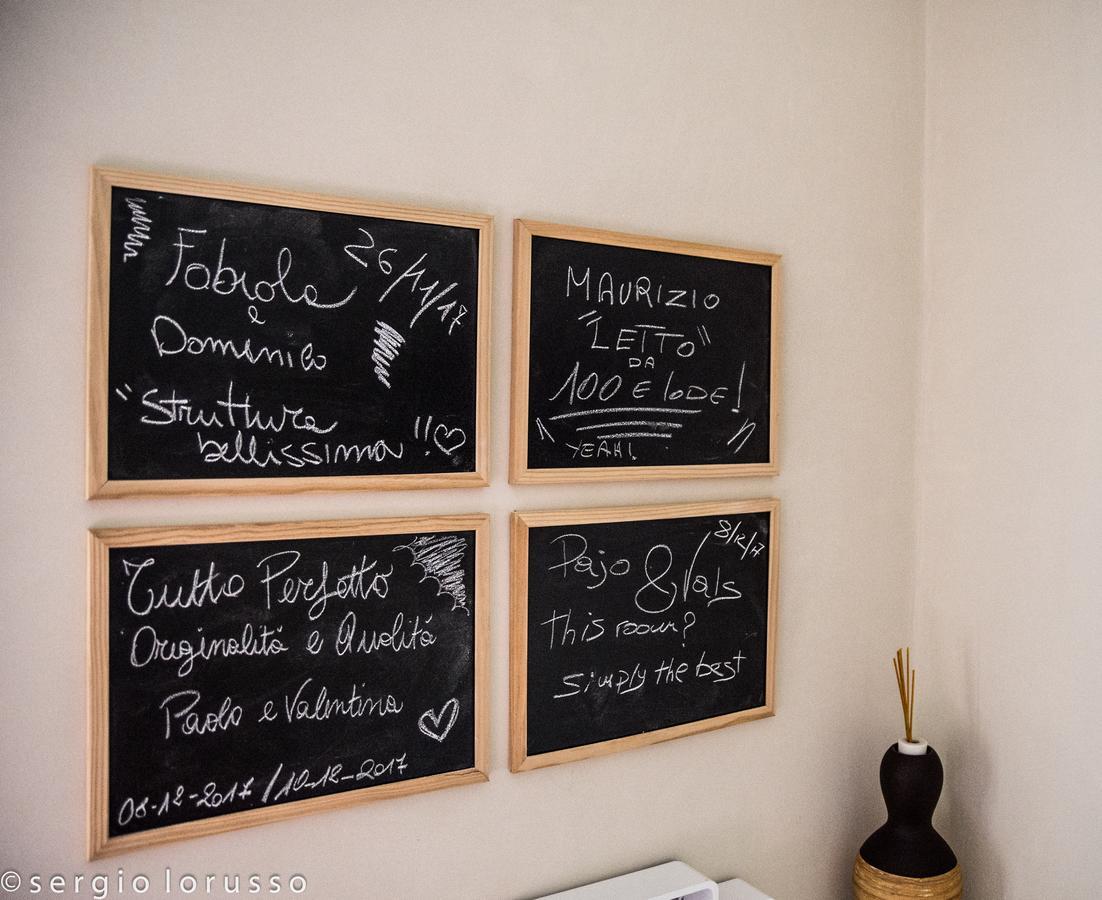 Fabiola 26/11/17
e
Domenico
"Struttura
bellissima !!
MAURIZIO
"LETTO"
DA
100 E lODE!
YEAH!
Tutto Perfetto
Originalità e Qualità
Paolo e Valentina
08-12-2017 / 10-12-2017
8/12/17
Pajo & Vals
this room?
simply the best
© sergio lorusso